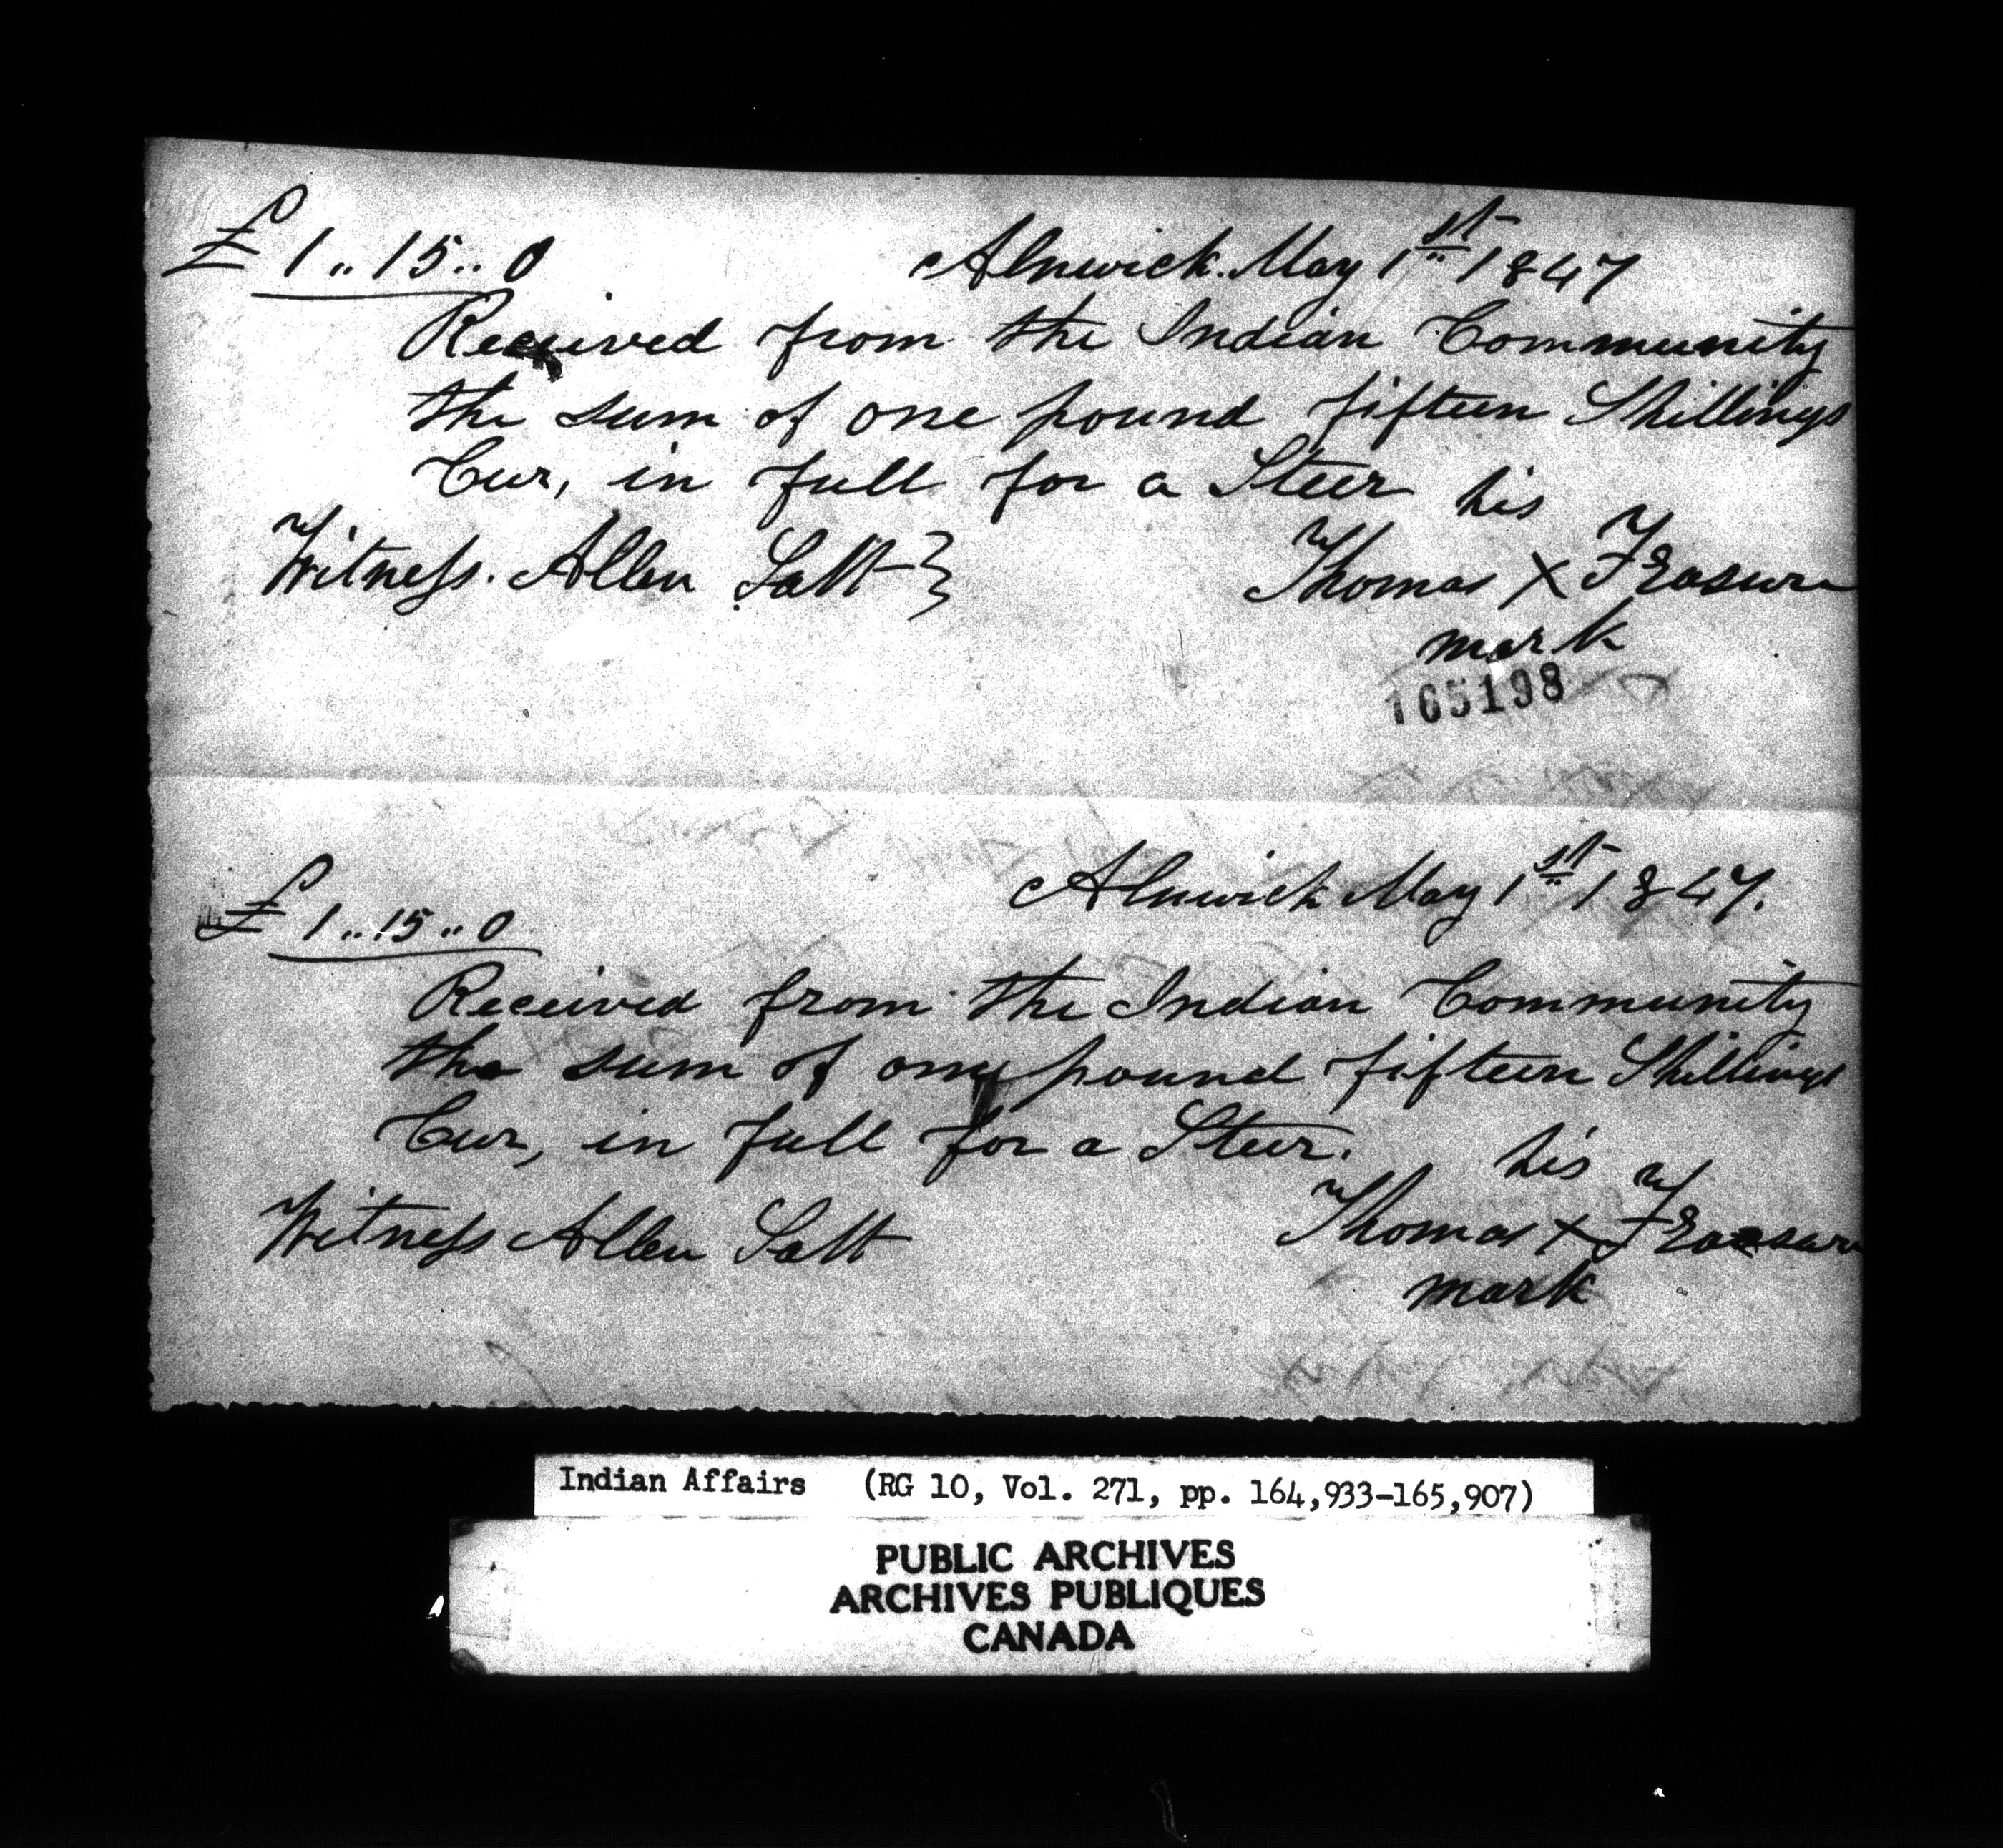 £ 1 .. 15 .. 0 Alnwick. May 1st 1847
Received from the Indian Community
the sum of one pound fifteen Shillings
Cur, in full for a Steer his
Witness. Allen Salt } Thomas X
mark
165198
£ 1 .. 15 .. 0 Alnwick May 1st 1847.
Received from the Indian Community
the sum of one pound fifteen Shillings
Cur, in full for a Steer. his
Witness Allen Salt Thomas X
mark
Indian Affairs (RG 10, Vol. 271, pp. 164,933-165,907)
PUBLIC ARCHIVES
ARCHIVES PUBLIQUES
CANADA